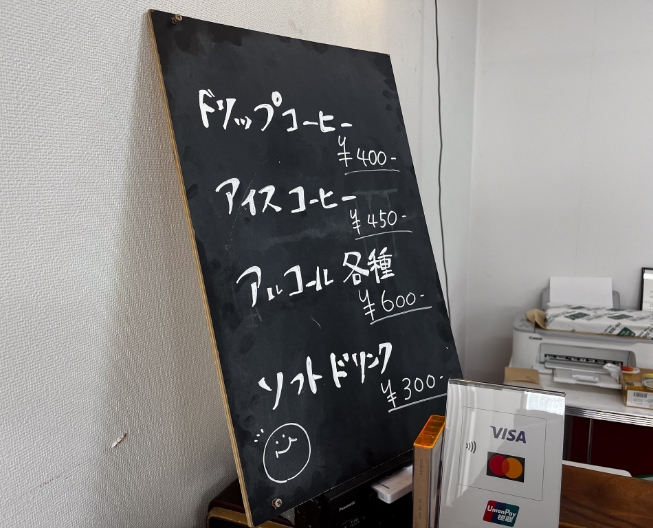 ドリップコーヒー
¥400-
アイスコーヒー
¥450-
アルコール 各種
¥600-
ソフトドリンク
¥300-
VISA
UnionPay
银联
Panasonic